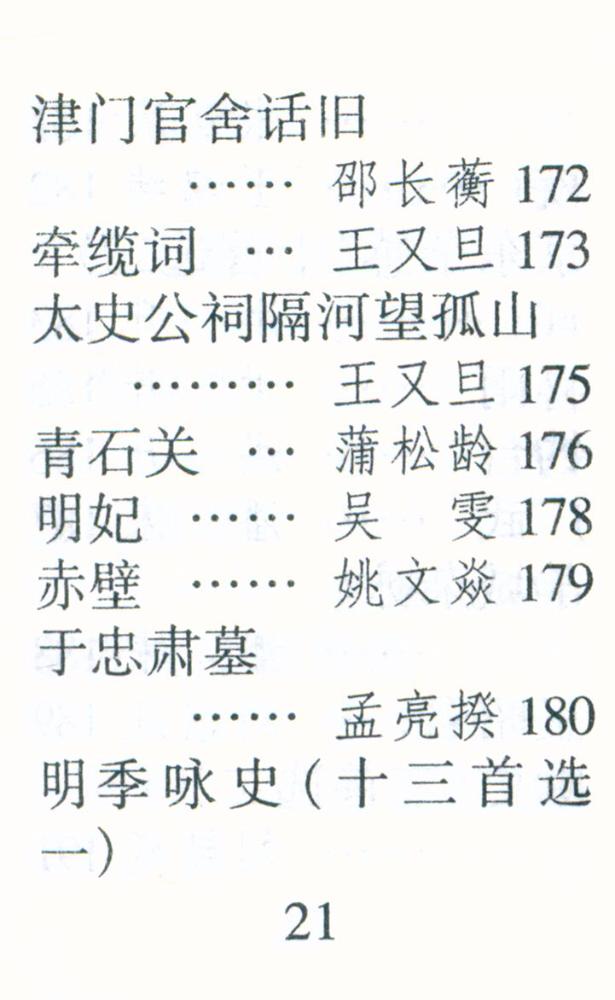 津门官舍话旧
…… 邵长蘅 172
牵缆词 … 王又旦 173
太史公祠隔河望孤山
……… 王又旦 175
青石关 … 蒲松龄 176
明妃 …… 吴　雯 178
赤壁 …… 姚文焱 179
于忠肃墓
…… 孟亮揆 180
明季咏史(十三首选
一)
21